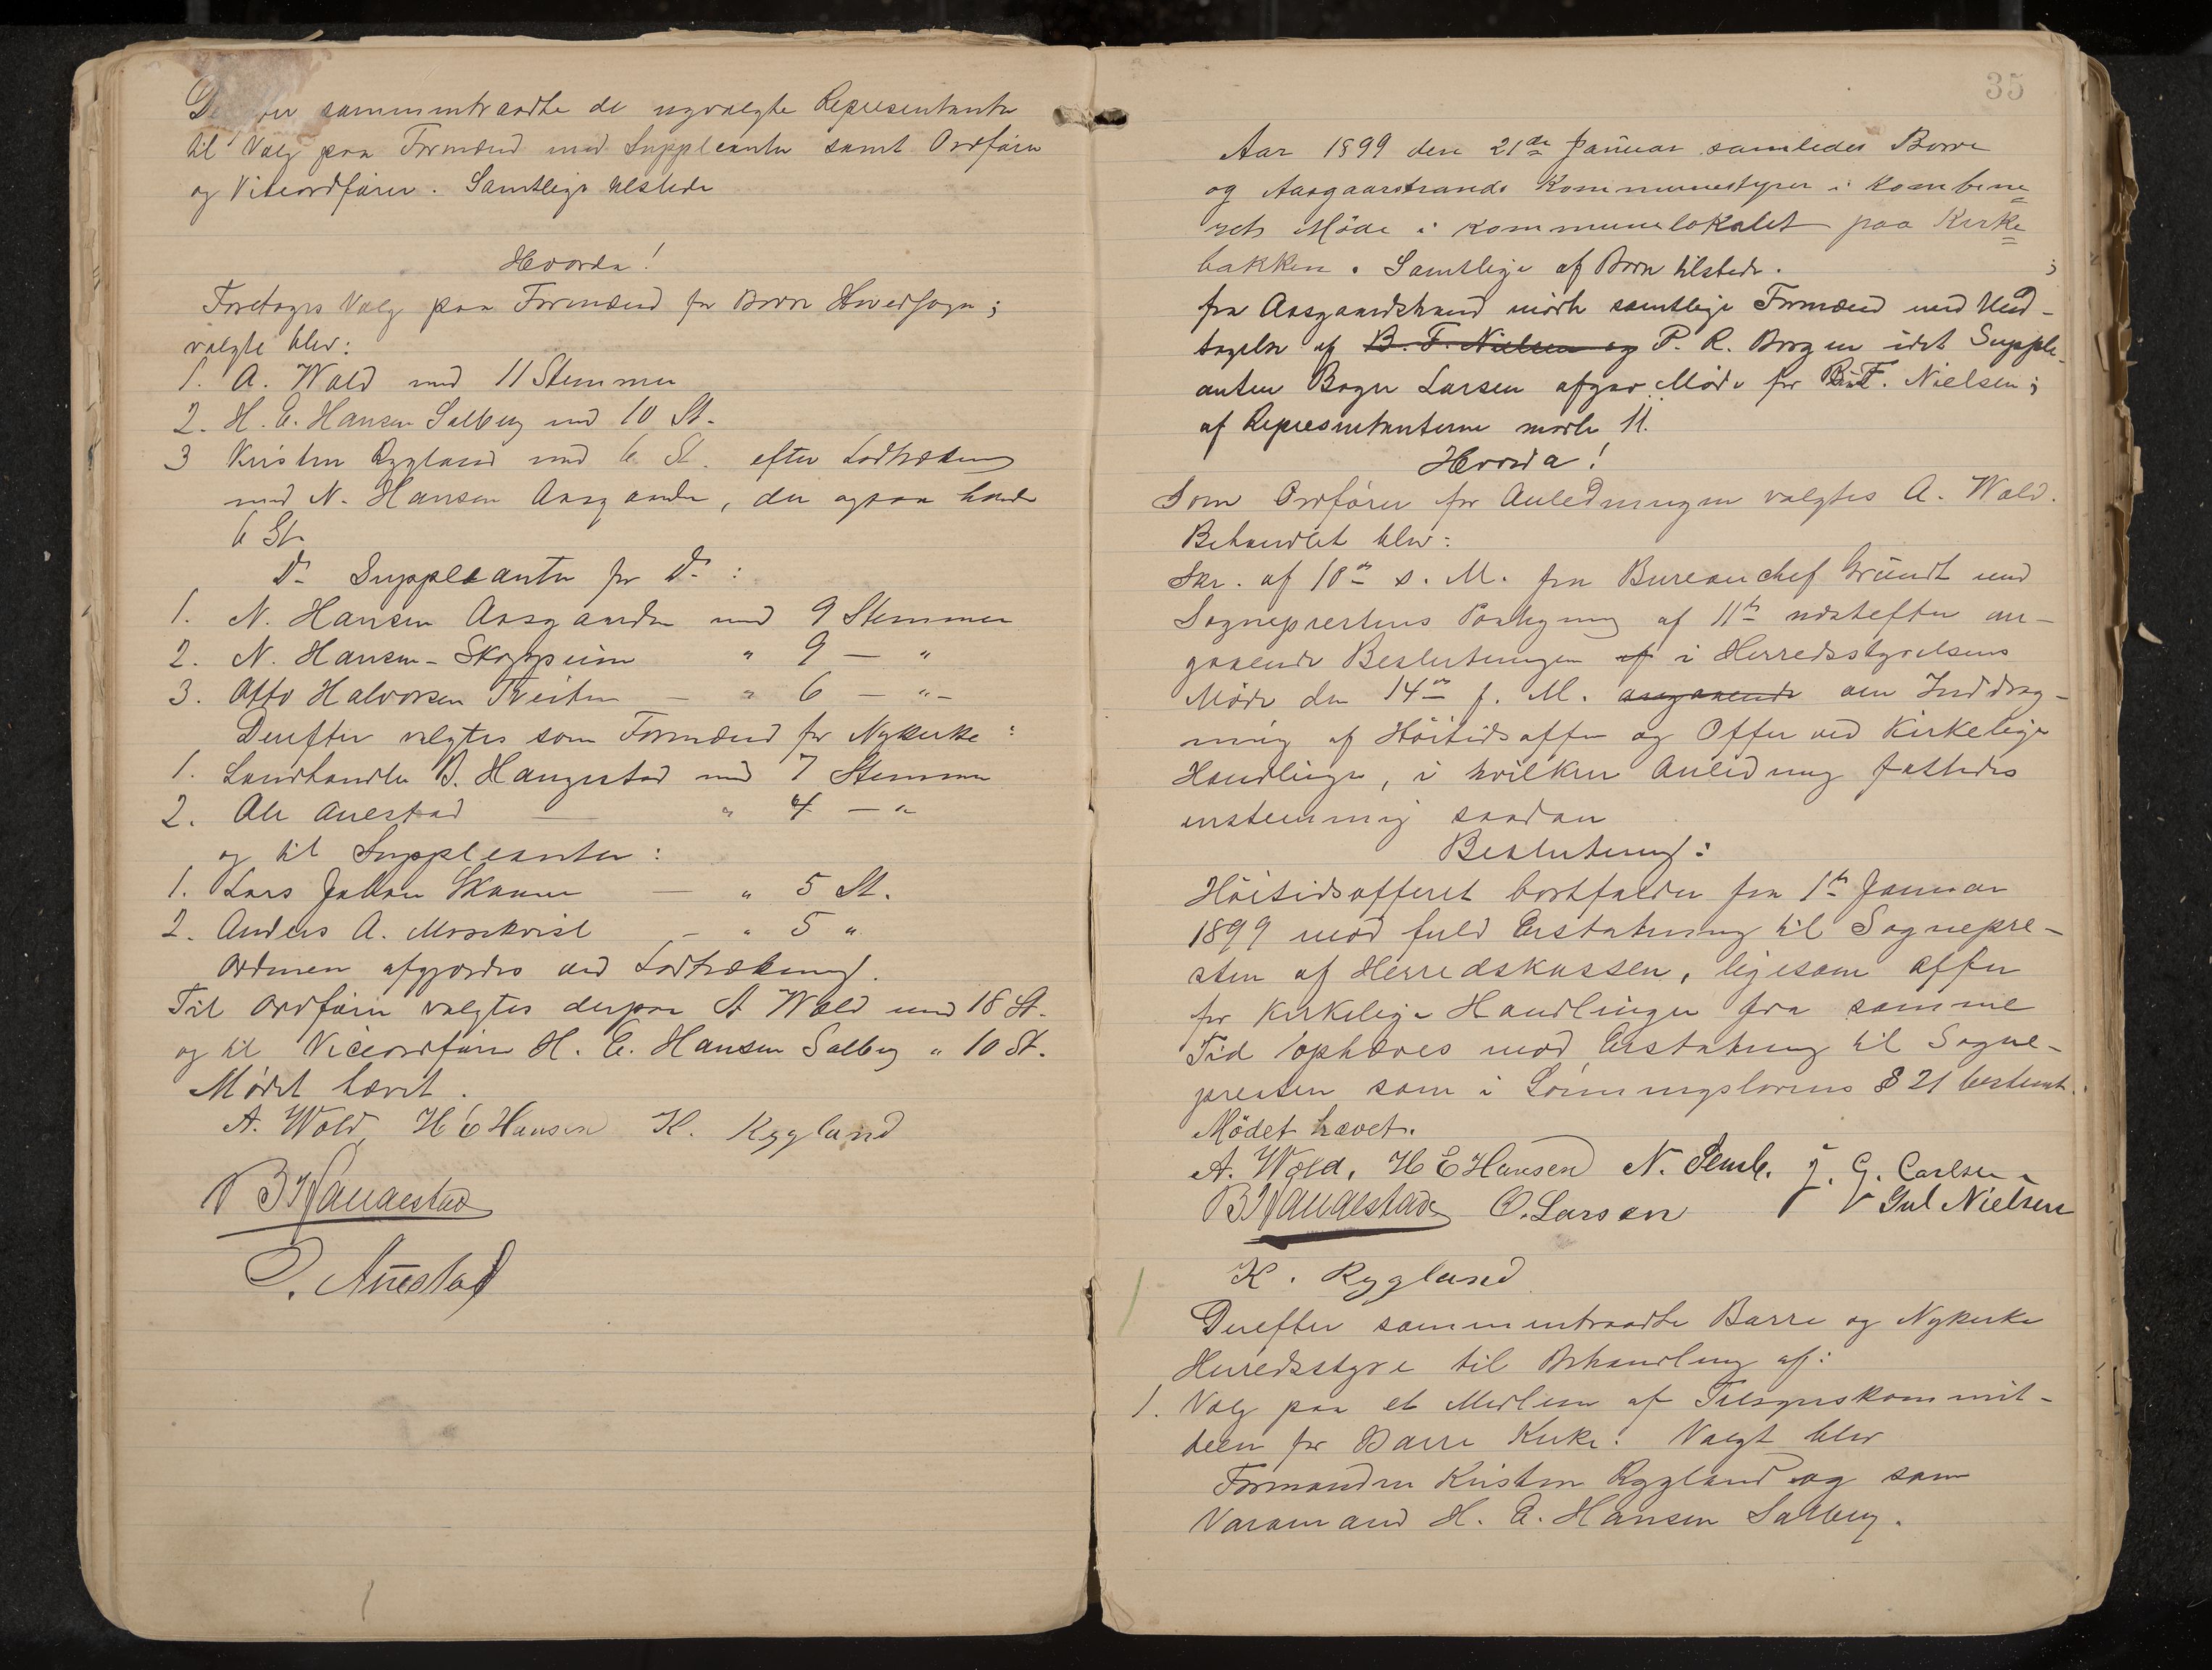 Derpaa sammentraadte de nyvalgte Representanter
til Valg paa Formænd med Suppleanter samt Ordfører
og Viceordfører. Samtlige tilstede
Hvorda!
Foretoges Valg paa Formænd for Borre Hovedsogn;
valgte blev:
1. A. Wold med 11 Stemmer
2. H. E. Hansen Solberg med 10 St.
3 Kristen Rygland med 6 St. efter Lodtrækning
med N. Hansen Aasgaarden, der ogsaa havde
6 St.
Do Suppleanter for Do:
1. N. Hansen Aasgaarden med 9 Stemmer
2. N. Hansen-Skoppum " 9 — "
3. Otto Halvorsen Tveiten — " 6 — "-
Derefter valgtes som Formænd for Nykirke:
1. Landhandler B. Haugestad med 7 Stemmer
2. Ole Auestad — " 4 — "
og til Suppleanter:
1. Lars Johan Skaane — " 5 St.
2. Anders A. Mørkvist — " 5 "
Ordenen afgjordes ved Lodtrækning.
Til Ordfører valgtes derpaa A Wold med 18 St.
og til Viceordfører H. E. Hansen Solberg " 10 St.
Mødet hævet.
A. Wold H E Hansen K. Rygland
B Haugestad
O. Auestad
35
Aar 1899 den 21de Januar samledes Borre
og Aasgaardstrands Kommunestyrer i kombine=
rets Møde i Kommunelokalet paa Kirke=
bakken. Samtlige af Borre tilstede. ;
fra Aasgaardstrand mødte samtlige Formænd med Und-
tagelse af B. F. Nielsen og P. R. Borgen idet Supple-
anten Bager Larsen afgav Møde for B. F. Nielsen;
af Representanterne mødte 11.
Hvorda!
Som Ordfører for Anledningen valgtes A. Wold.
Behandlet blev:
Skr. af 10de d. M. fra Bureauchef Gründt med
Sogneprestens Paategning af 11te næstefter an-
gaaende Beslutningen af i Herredsstyrelsens
Møde den 14de f. M. angaaende om Inddrag-
ning af Høitidsoffer og Offer ved kirkelige
Handlinger, i hvilken Anledning fattedes
enstemmig saadan
Beslutning:
Høitidsofferet bortfalder fra 1te Januar
1899 mod fuld Erstatning til Sognepre-
sten af Herredskassen, ligesom offer
for kirkelige Handlinger fra samme
Tid ophæves mod Erstatning til Sogne-
presten som i Lønningslovens § 21 bestemt.
Mødet hævet.
A. Wold, H E Hansen N. J. G. Carlsen
B Haugestad O. Larsen Gul Nielsen
K. Rygland
Derefter sammentraadte Borre og Nykirke
Herredsstyre til Behandling af:
1. Valg paa et Medlem af Tilsynskommit-
teen for Borre Kirke. Valgt blev
Formanden Kristen Rygland og som
Varamand H. E. Hansen Solberg.